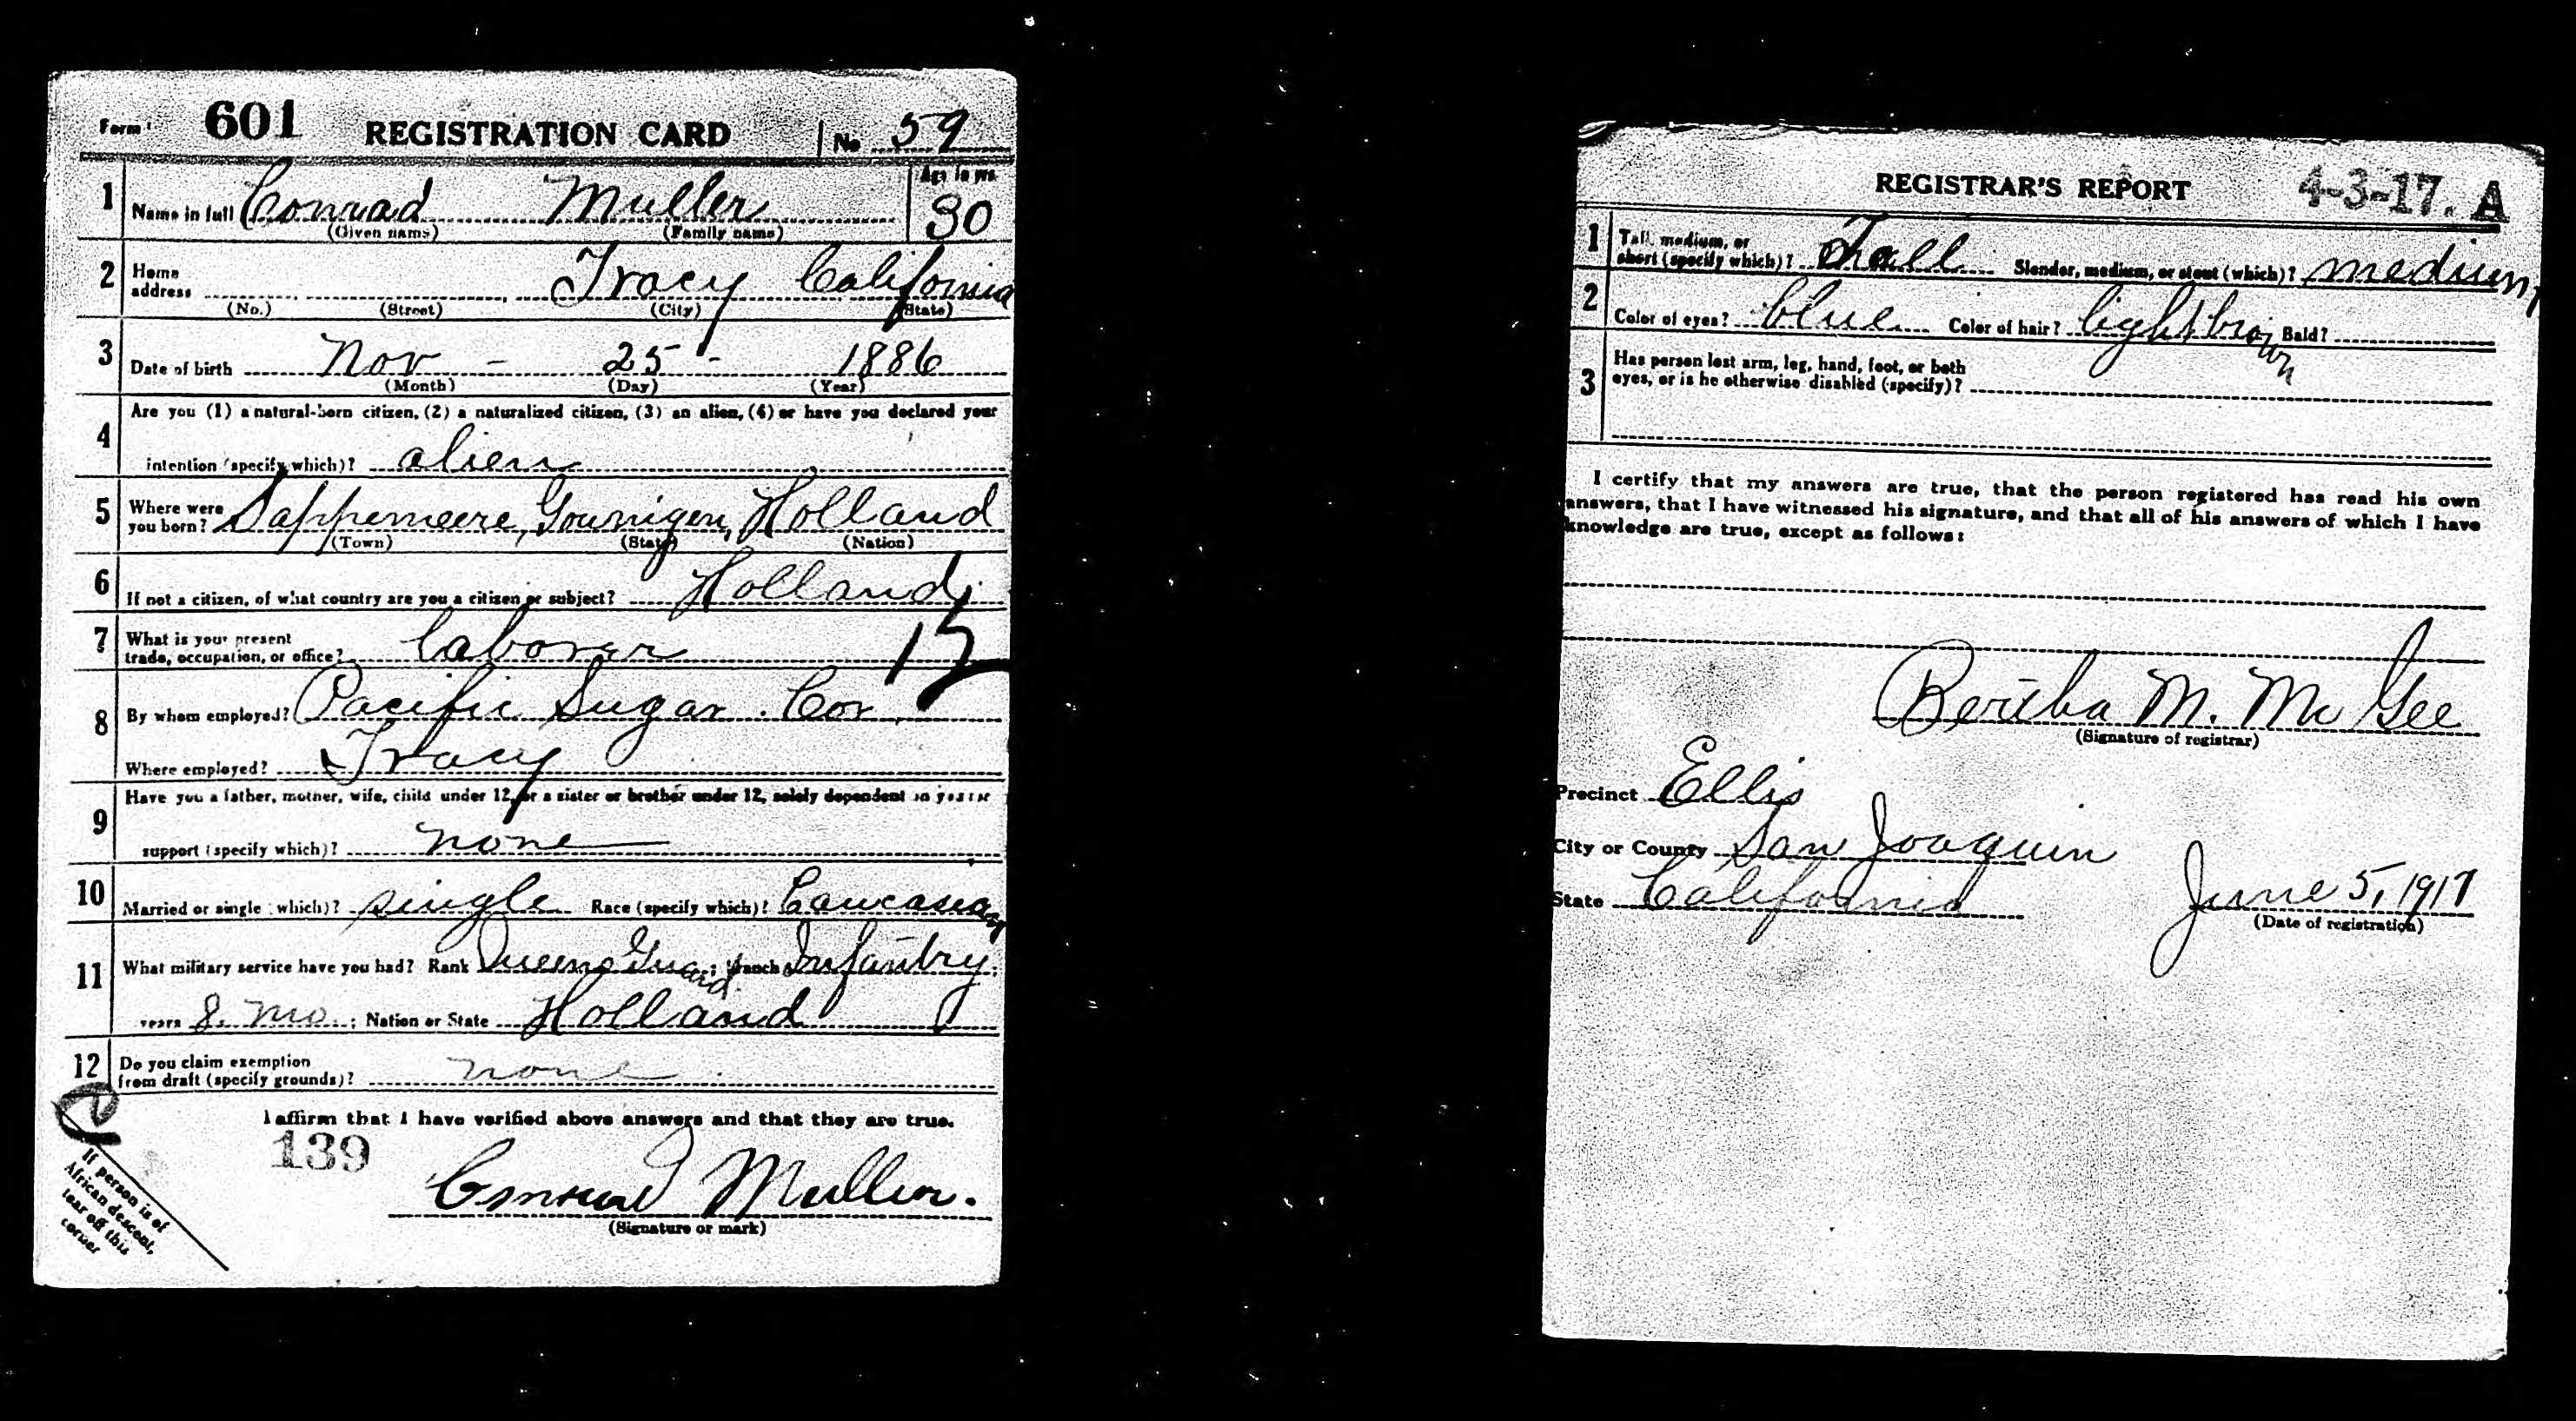 Form 1 601 REGISTRATION CARD No 59
1 Name in full Conrad Muller Age in yrs. 30
(Given name) (Family name)
2 Home address Tracy California
(No.) (Street) (City) (State)
3 Date of birth Nov - 25 - 1886
(Month) (Day) (Year)
4 Are you (1) a natural-born citizen, (2) a naturalized citizen, (3) an alien, (4) or have you declared your
intention (specify which)? alien
5 Where were you born? Sappemeere, Grounigen, Holland
(Town) (State) (Nation)
6 If not a citizen, of what country are you a citizen or subject? Holland
7 What is your present trade, occupation, or office? laborer 15
8 By whom employed? Pacific Sugar Cor.
Where employed? Tracy
9 Have you a father, mother, wife, child under 12, or a sister or brother under 12, solely dependent on you for
support (specify which)? none
10 Married or single (which)? single Race (specify which)? Caucasian
11 What military service have you had? Rank Queens Guard ; branch Infantry ;
years 8. mo. ; Nation or State Holland
12 Do you claim exemption from draft (specify grounds)? none
I affirm that I have verified above answers and that they are true.
139
Conrad Muller.
(Signature or mark)
If person is of
African descent,
tear off this
corner
REGISTRAR'S REPORT 4-3-17. A
1 Tall, medium, or short (specify which)? Tall Slender, medium, or stout (which)? medium
2 Color of eyes? blue Color of hair? light brown Bald?
3 Has person lost arm, leg, hand, foot, or both eyes, or is he otherwise disabled (specify)?
I certify that my answers are true, that the person registered has read his own
answers, that I have witnessed his signature, and that all of his answers of which I have
knowledge are true, except as follows:
Bertha M. McGee
(Signature of registrar)
Precinct Ellis
City or County San Joaquin
State California June 5, 1917
(Date of registration)